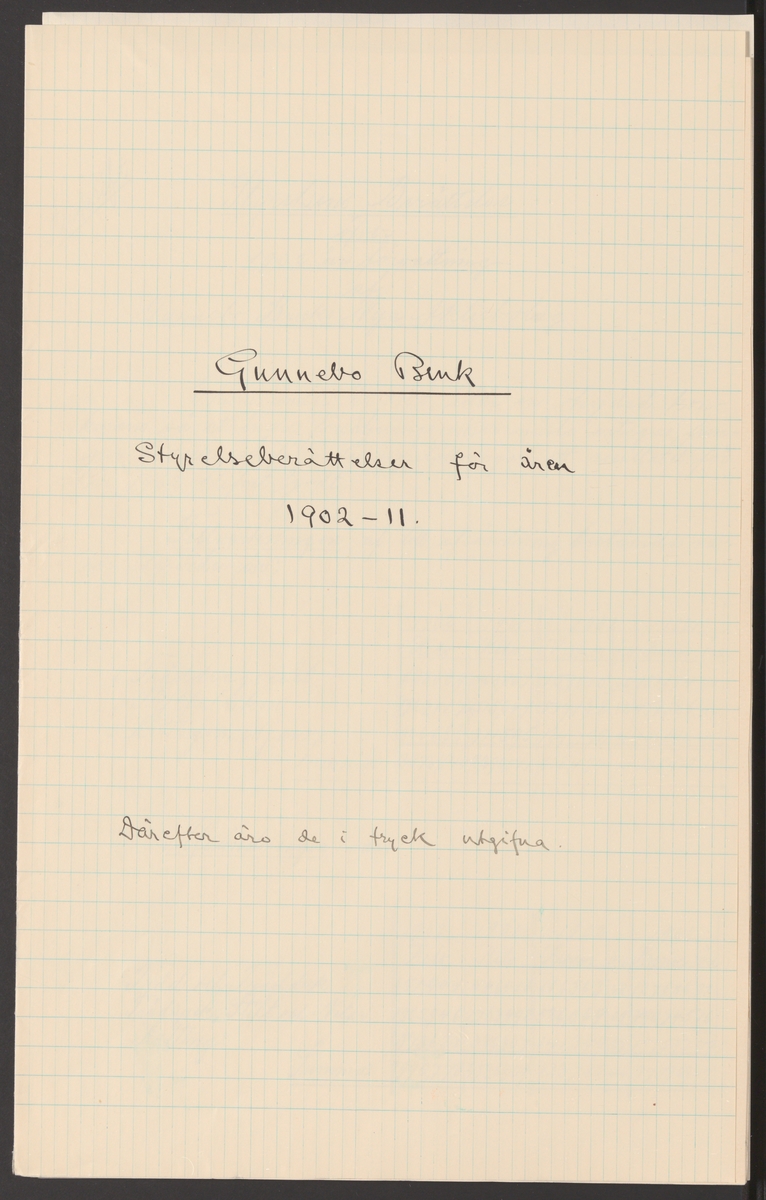 Gunnebo Bruk
Styrelseberättelser för åren
1902-11.
Därefter äro de i tryck utgifna.